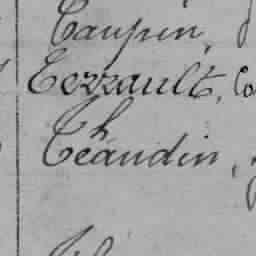 Taupin,
Terrault, Co
Théaudin,